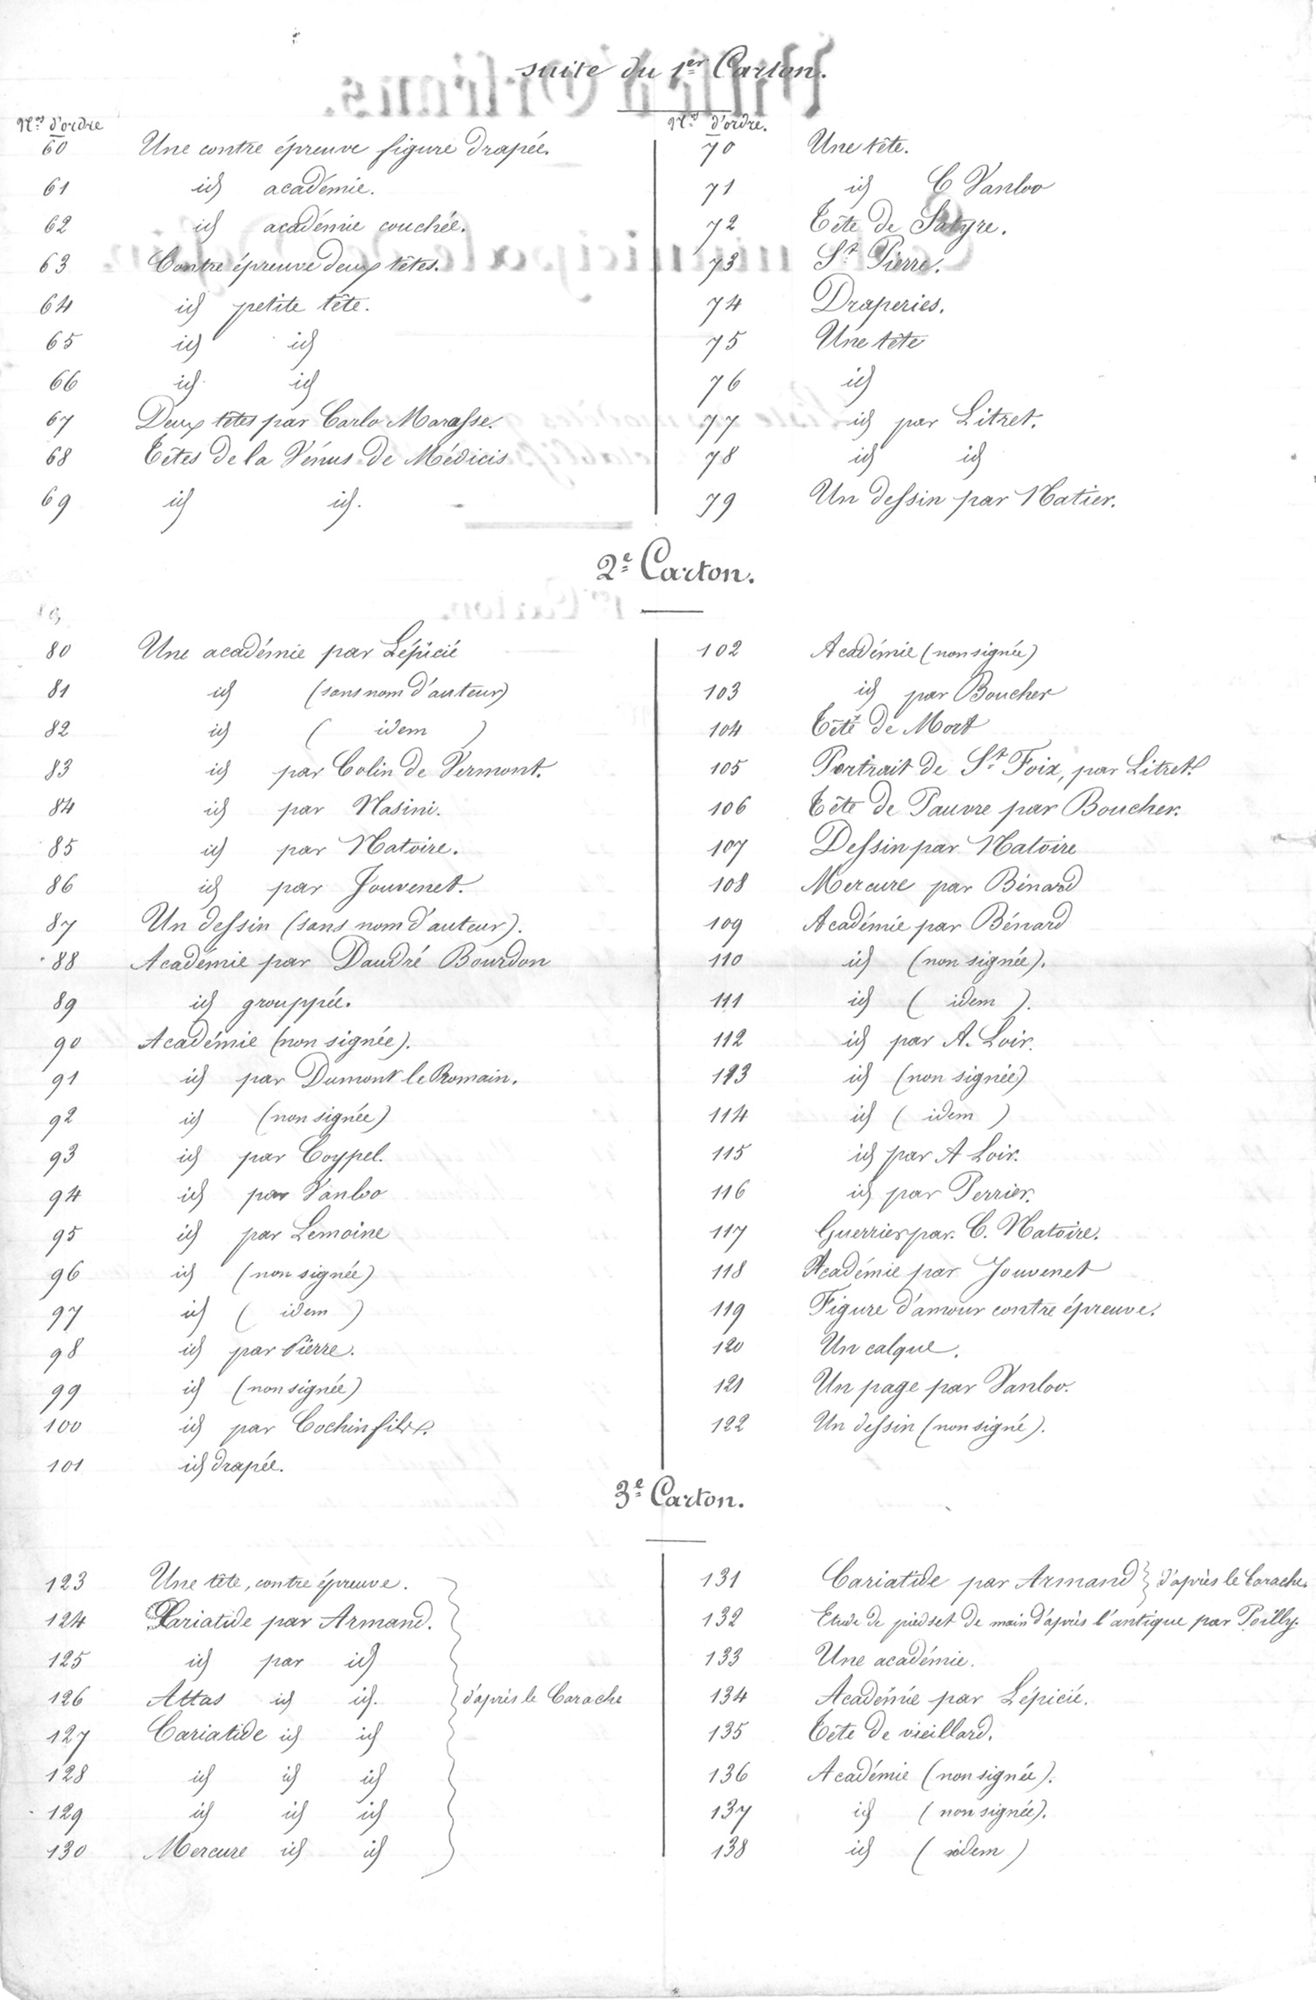 suite du 1er Carton.
Nos d'ordre
60 Une contre épreuve figure drapée.
61 id académie.
62 id académie couchée.
63 Contre épreuve deux têtes.
64 id petite tête.
65 id id
66 id id
67 Deux têtes par Carlo Maratte.
68 Têtes de la Vénus de Médicis
69 id id.
Nos d'ordre.
70 Une tête.
71 id C Vanloo
72 Tête de Satyre.
73 St Pierre.
74 Draperies.
75 Une tête
76 id
77 id par Litret.
78 id id
79 Un dessin par Natier.
2e Carton.
80 Une académie par Lépicié
81 id (sans nom d'auteur)
82 id ( idem )
83 id par Colin de Vermont.
84 id par Nasini.
85 id par Natoire.
86 id par Jouvenet.
87 Un dessin (sans nom d'auteur).
88 Académie par Dandré Bourdon
89 id grouppée.
90 Académie (non signée).
91 id par Dumont le Romain.
92 id (non signée)
93 id par Coypel.
94 id par Vanloo
95 id par Lemoine
96 id (non signée)
97 id ( idem )
98 id par Pierre.
99 id (non signée)
100 id par Cochin fils.
101 id drapée.
102 Académie (non signée)
103 id par Boucher
104 Tête de Mort
105 Portrait de St Foix, par Litret
106 Tête de Pauvre par Boucher.
107 Dessin par Natoire
108 Mercure par Bénard
109 Académie par Bénard
110 id (non signée).
111 id ( idem ).
112 id par A. Loir.
113 id (non signée)
114 id ( idem )
115 id par A Loir.
116 id par Perrier.
117 Guerrier par. C. Natoire.
118 Académie par Jouvenet
119 Figure d'amour contre épreuve.
120 Un calque.
121 Un page par Vanloo.
122 Un dessin (non signé).
3e Carton.
123 Une tête, contre épreuve.
124 Cariatide par Armand.
125 id par id
126 Attas id id. d'après le Carache
127 Cariatide id id
128 id id id
129 id id id
130 Mercure id id
131 Cariatide par Armand } d'après le Carache.
132 Etude de pieds et de main d'après l'antique par Poilly.
133 Une académie.
134 Académie par Lépicié.
135 Tête de vieillard.
136 Académie (non signée).
137 id (non signée).
138 id ( idem )